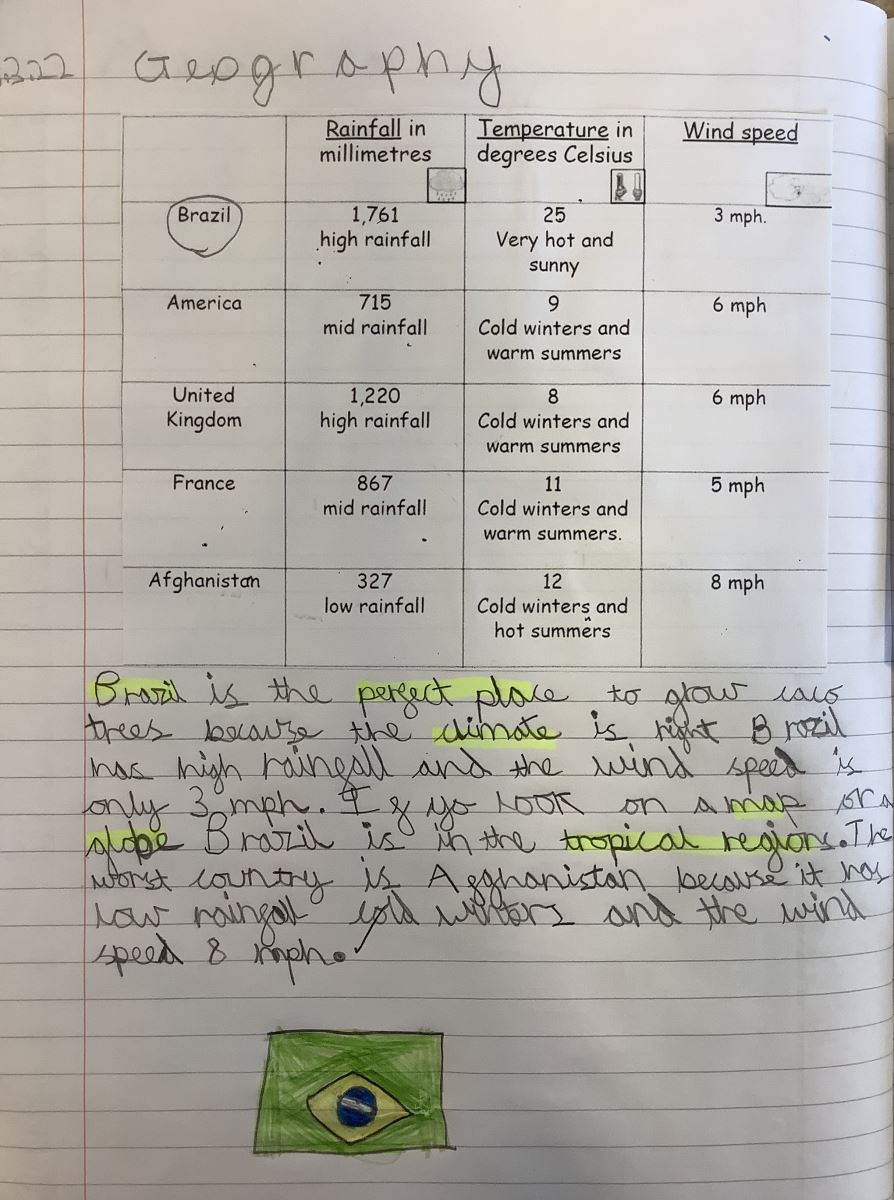 3.22 Geography
Rainfall in Temperature in Wind speed
millimetres degrees Celsius
Brazil 1,761 25 3 mph.
high rainfall Very hot and
sunny
America 715 9 6 mph
mid rainfall Cold winters and
warm summers
United 1,220 8 6 mph
Kingdom high rainfall Cold winters and
warm summers
France 867 11 5 mph
mid rainfall Cold winters and
warm summers.
Afghanistan 327 12 8 mph
low rainfall Cold winters and
hot summers
Brazil is the perfect place to grow caco
trees because the climate is right Brazil
has high rainfall and the wind speed is
only 3 mph. If yo look on a map or a
globe Brazil is in the tropical regions. The
worst country is Afghanistan because it has
low rainfall cold winters and the wind
speed 8 mph.